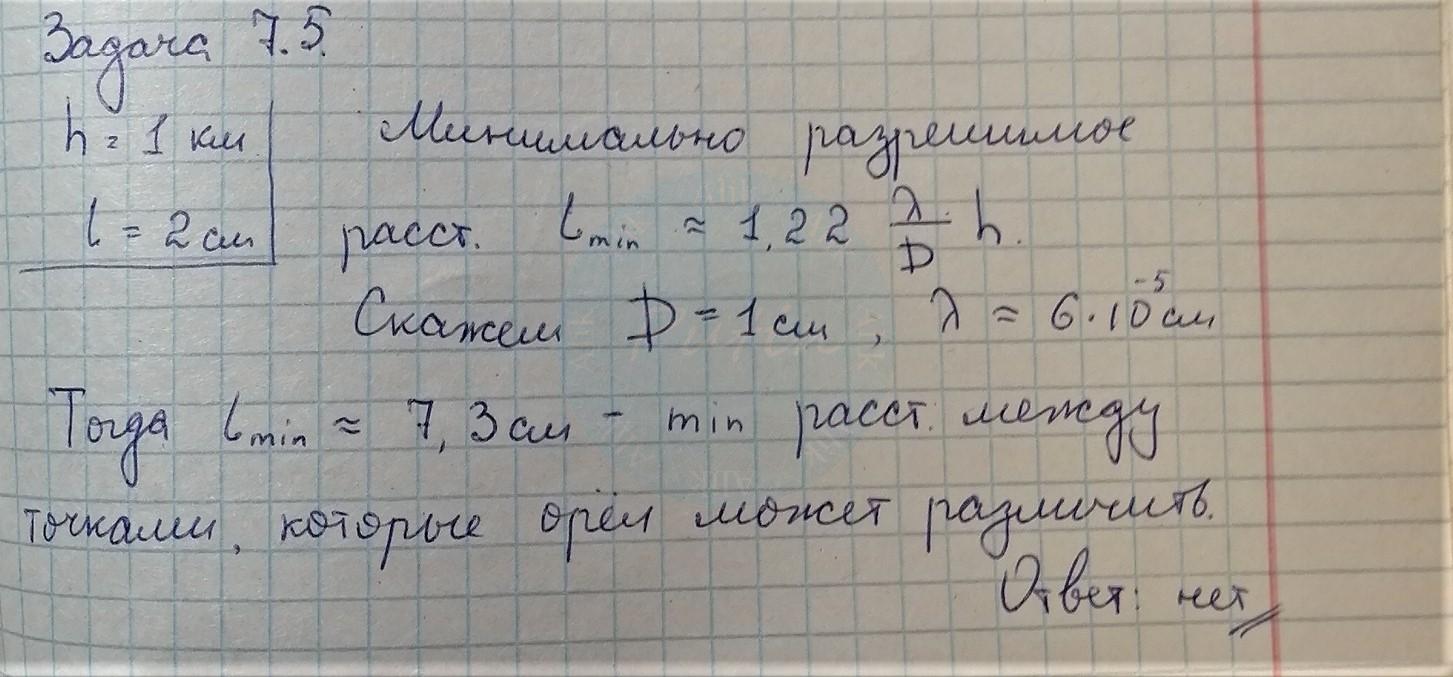 Задача 7.5.
h = 1 км
Минимально разрешимое
l = 2 см
расст. l_min ≈ 1,22 λ/D h.
Скажем D = 1 см, λ ≈ 6·10^-5 см
Тогда l_min ≈ 7,3 см - min расст. между
точками, которые орёл может различить.
Ответ: нет